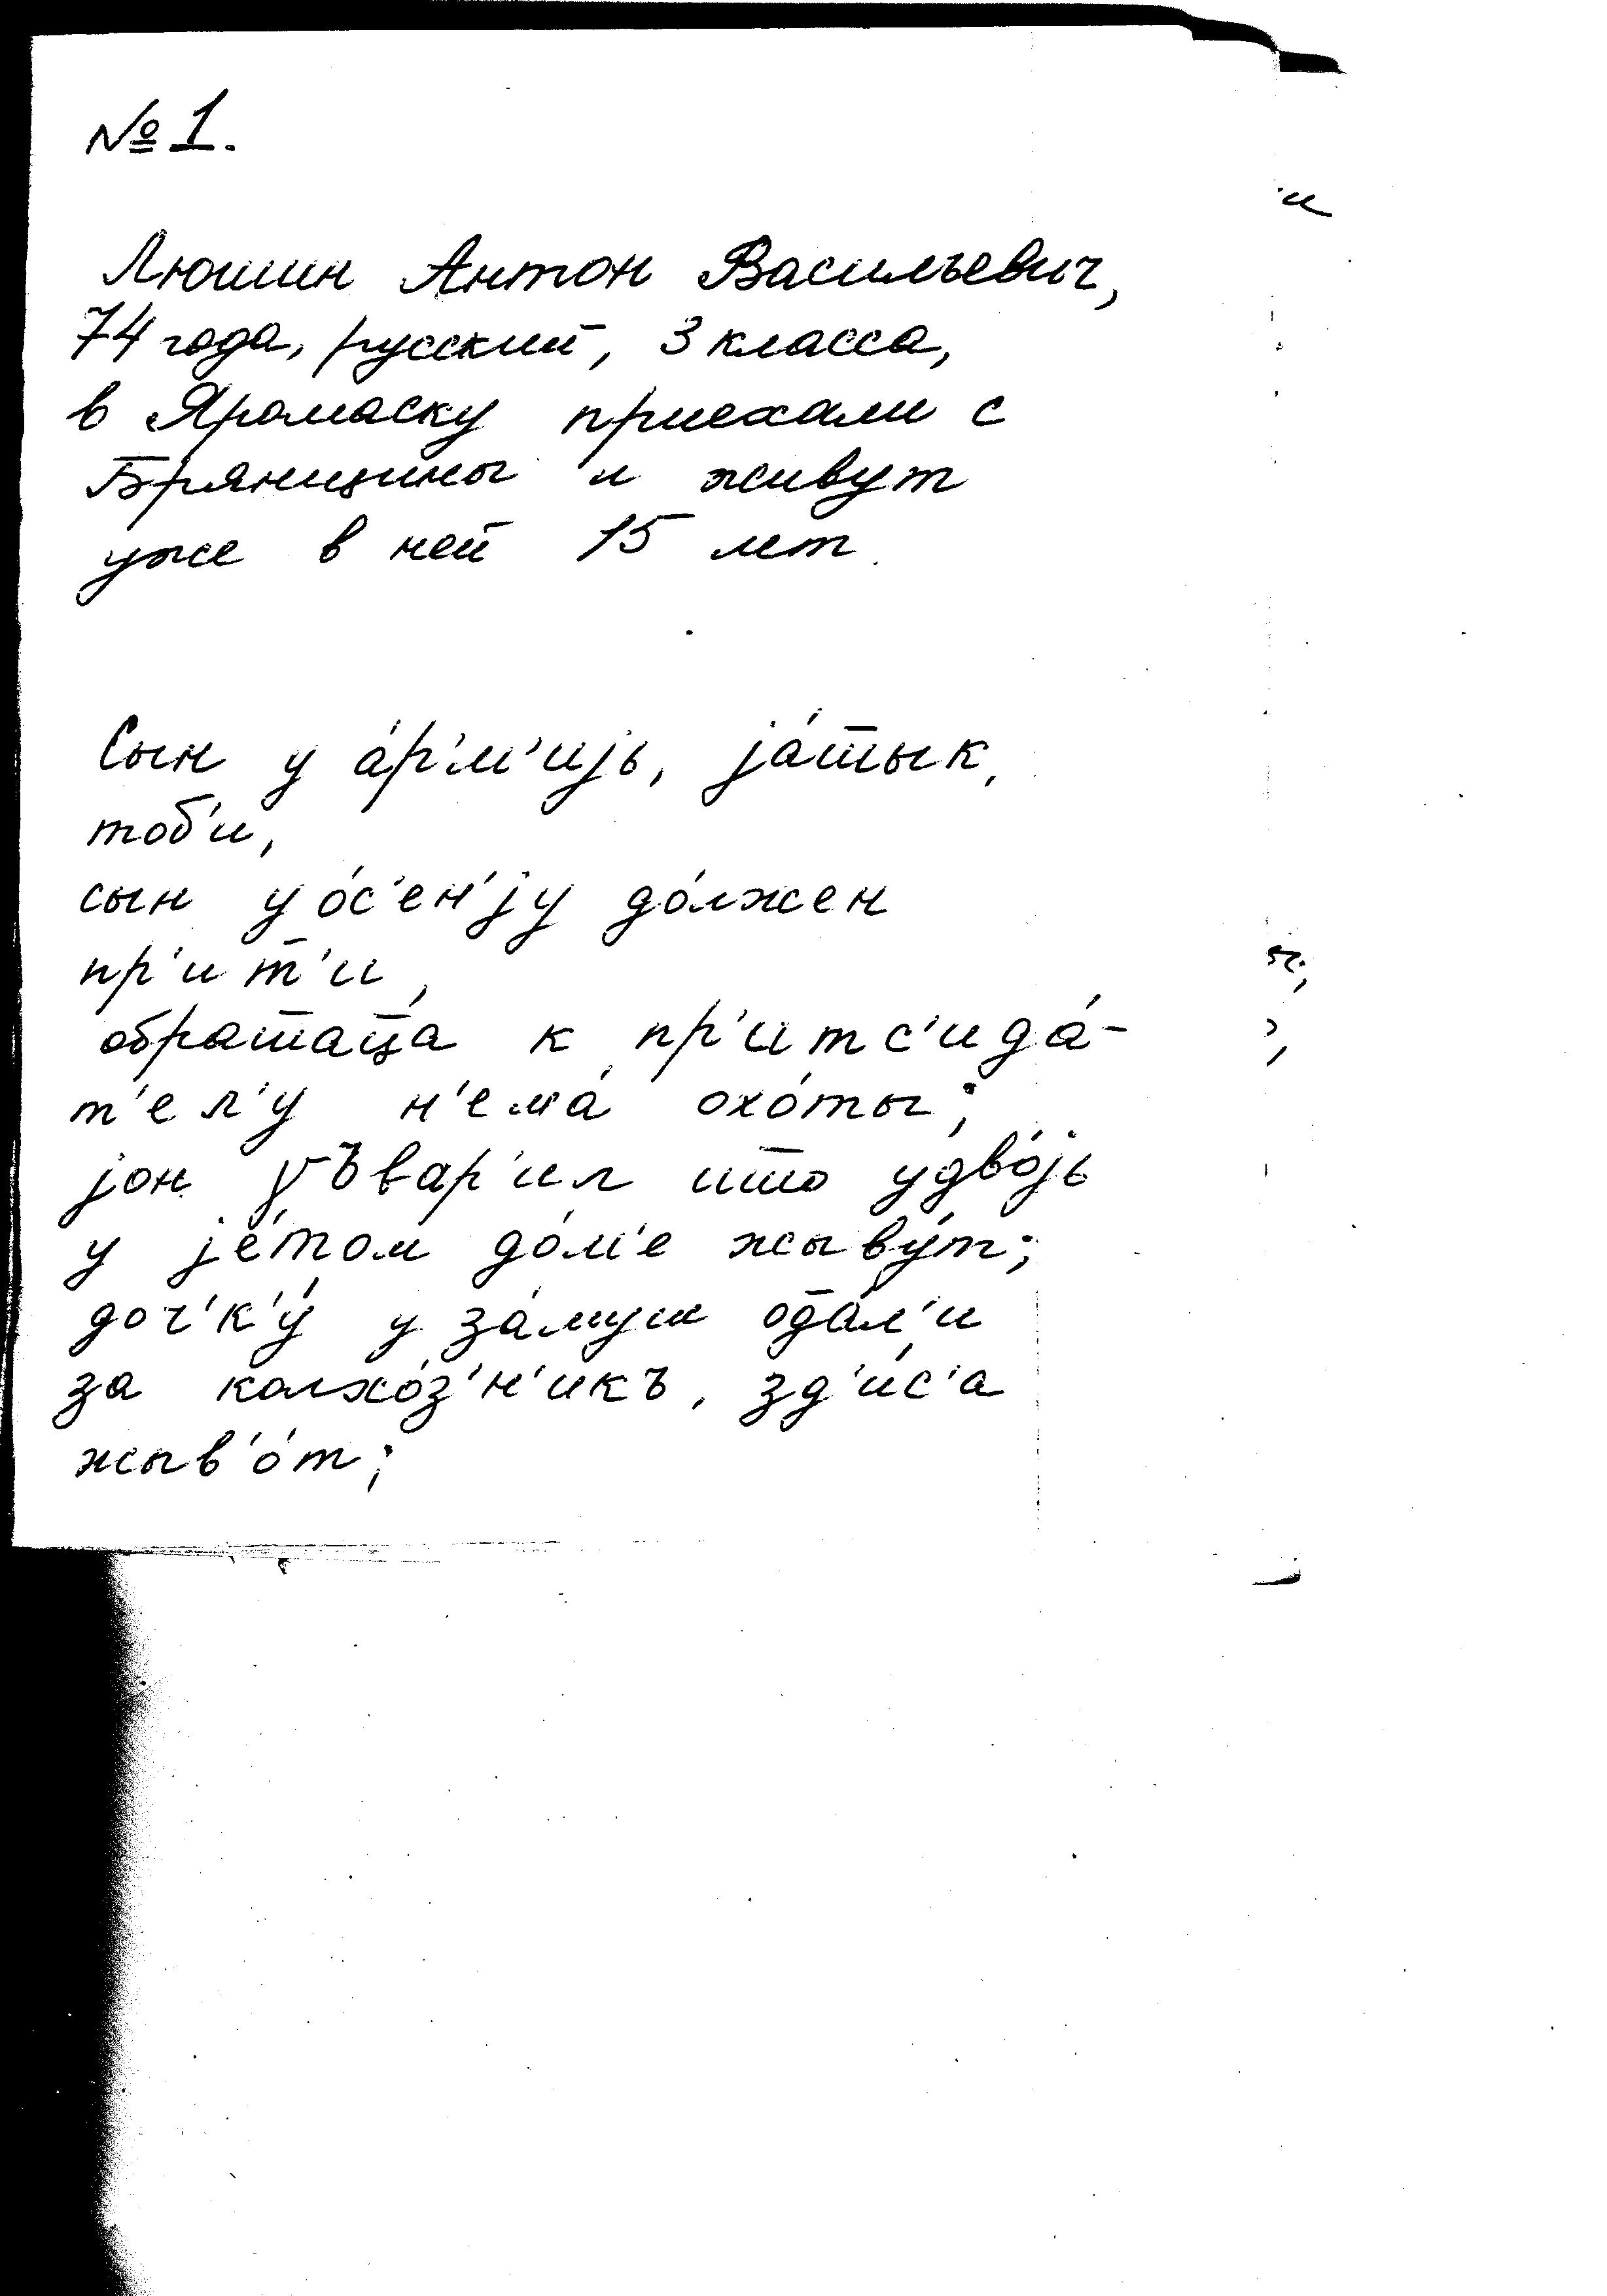 № 1.
Люшин Антон Васильевич,
74 года, русский, 3 класса,
в Яромаску приехали с
Брянщины и живут
уже в ней 15 лет.
Сын у а́р'м'иjь, jа́т̄ык,
тоб'и,
сын у о́с'ен'jу до́лжен
пр'ит̄'и,
обрат̄ац̄а к пр'итс'ида́-
т'ел'у н'ема́ охо́ты;
jон γъвар'ил што удво́jь
у jе́том до́м'е жыву́т;
доч'к'у́ у за́муш од̄а́л'и
за колхо́з'н'икъ, зд'ис'а
жыв'о́т;